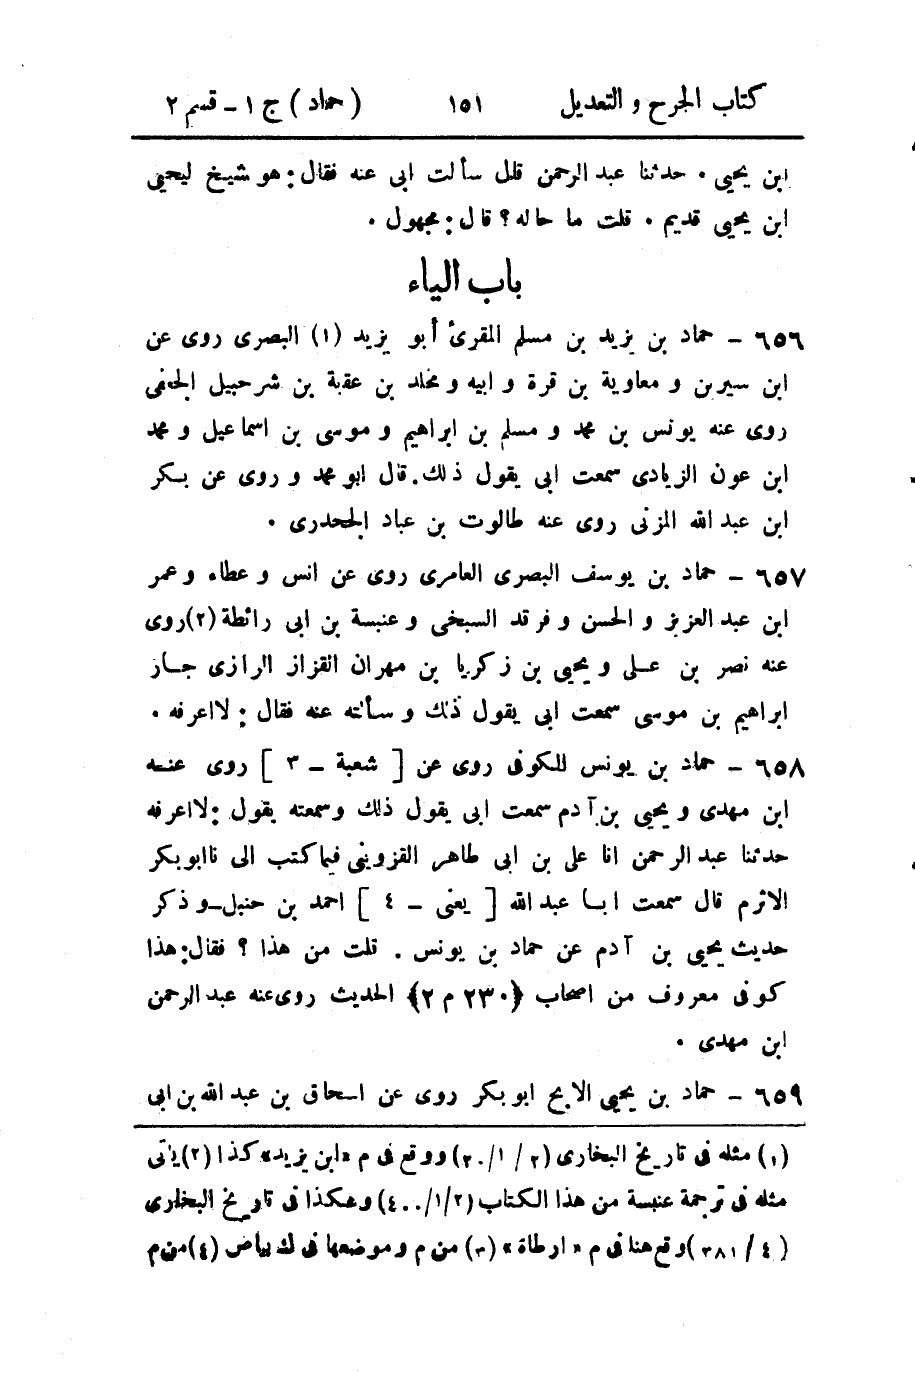 كتاب الجرح و التعديل ١٥١ (حماد) ج ١ - قسم ٢
ابن يحيى . حدثنا عبد الرحمن قال سألت ابى عنه فقال: هو شيخ ليحيى
ابن يحيى قديم . قلت ما حاله؟ قال: مجهول .
باب الياء
٦٥٦ - حماد بن يزيد بن مسلم المقرئ أبو يزيد (١) البصرى روى عن
ابن سيرين و معاوية بن قرة و ابيه و مخلد بن عقبة بن شرحبيل الجعفى
روى عنه يونس بن محمد و مسلم بن ابراهيم و موسى بن اسماعيل و محمد
ابن عون الزيادى سمعت ابى يقول ذلك. قال ابو محمد و روى عن بكر
ابن عبد الله المزنى روى عنه طالوت بن عباد الجحدرى .
٦٥٧ - حماد بن يوسف البصرى العامرى روى عن انس و عطاء و عمر
ابن عبد العزيز و الحسن و فرقد السبخى و عنبسة بن ابى رائطة (٢) روى
عنه نصر بن على و يحيى بن زكريا بن مهران القزاز الرازى جار
ابراهيم بن موسى سمعت ابى يقول ذلك و سألته عنه فقال: لا اعرفه .
٦٥٨ - حماد بن يونس الكوفى روى عن [ شعبة - ٣ ] روى عنه
ابن مهدى و يحيى بن آدم سمعت ابى يقول ذلك وسمعته يقول: لا اعرفه
حدثنا عبد الرحمن انا على بن ابى طاهر القزوينى فيما كتب الى نا ابو بكر
الاثرم قال سمعت ابا عبد الله [ يعنى - ٤ ] احمد بن حنبل - و ذكر
حديث يحيى بن آدم عن حماد بن يونس . قلت من هذا ؟ فقال: هذا
كوفى معروف من اصحاب (٢٣٠ م ٢) الحديث روى عنه عبد الرحمن
ابن مهدى .
٦٥٩ - حماد بن يحيى الابح ابو بكر روى عن اسحاق بن عبد الله بن ابى
(١) مثله فى تاريخ البخارى (٢ / ١ /٢٠) ووقع فى م «ابن يزيد» كذا (٢) يأتى
مثله فى ترجمة عنبسة من هذا الكتاب (٤٠٠/١/٢) وهكذا فى تاريخ البخارى
( ٤ / ٣٨١ ) وقع هنا فى م « ارطاة » (٣) من م و موضعها فى ك بياض (٤) من م